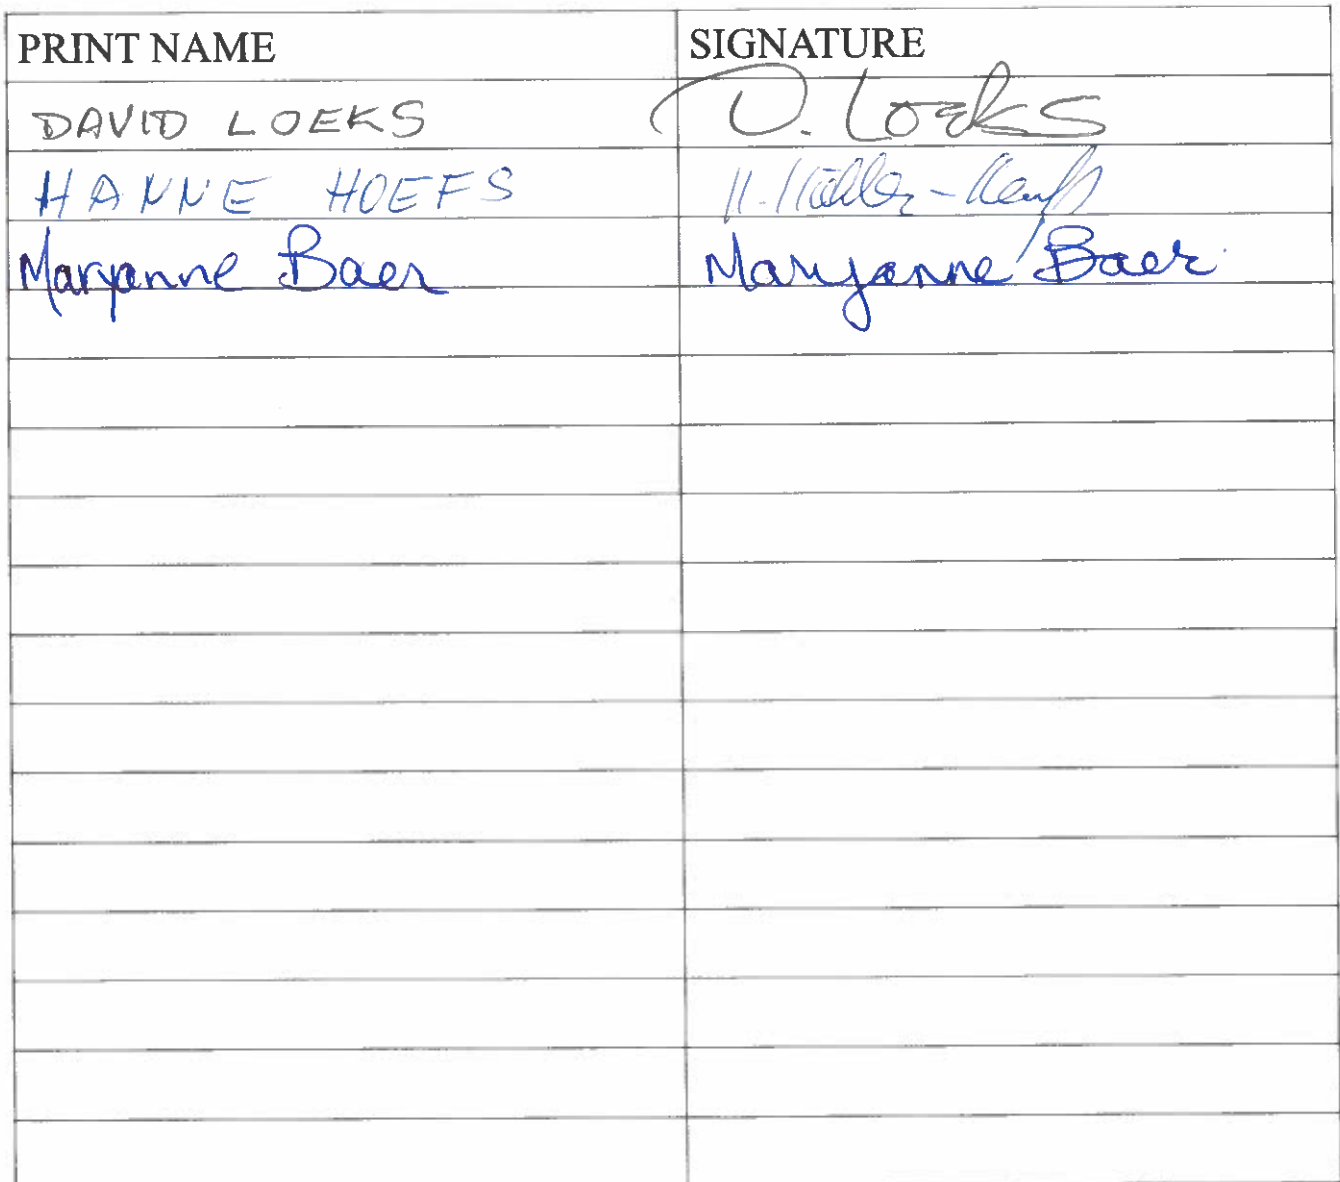 PRINT NAME SIGNATURE
DAVID LOEKS D. Loeks
HANNE HOEFS
Maryanne Baer Maryanne Baer